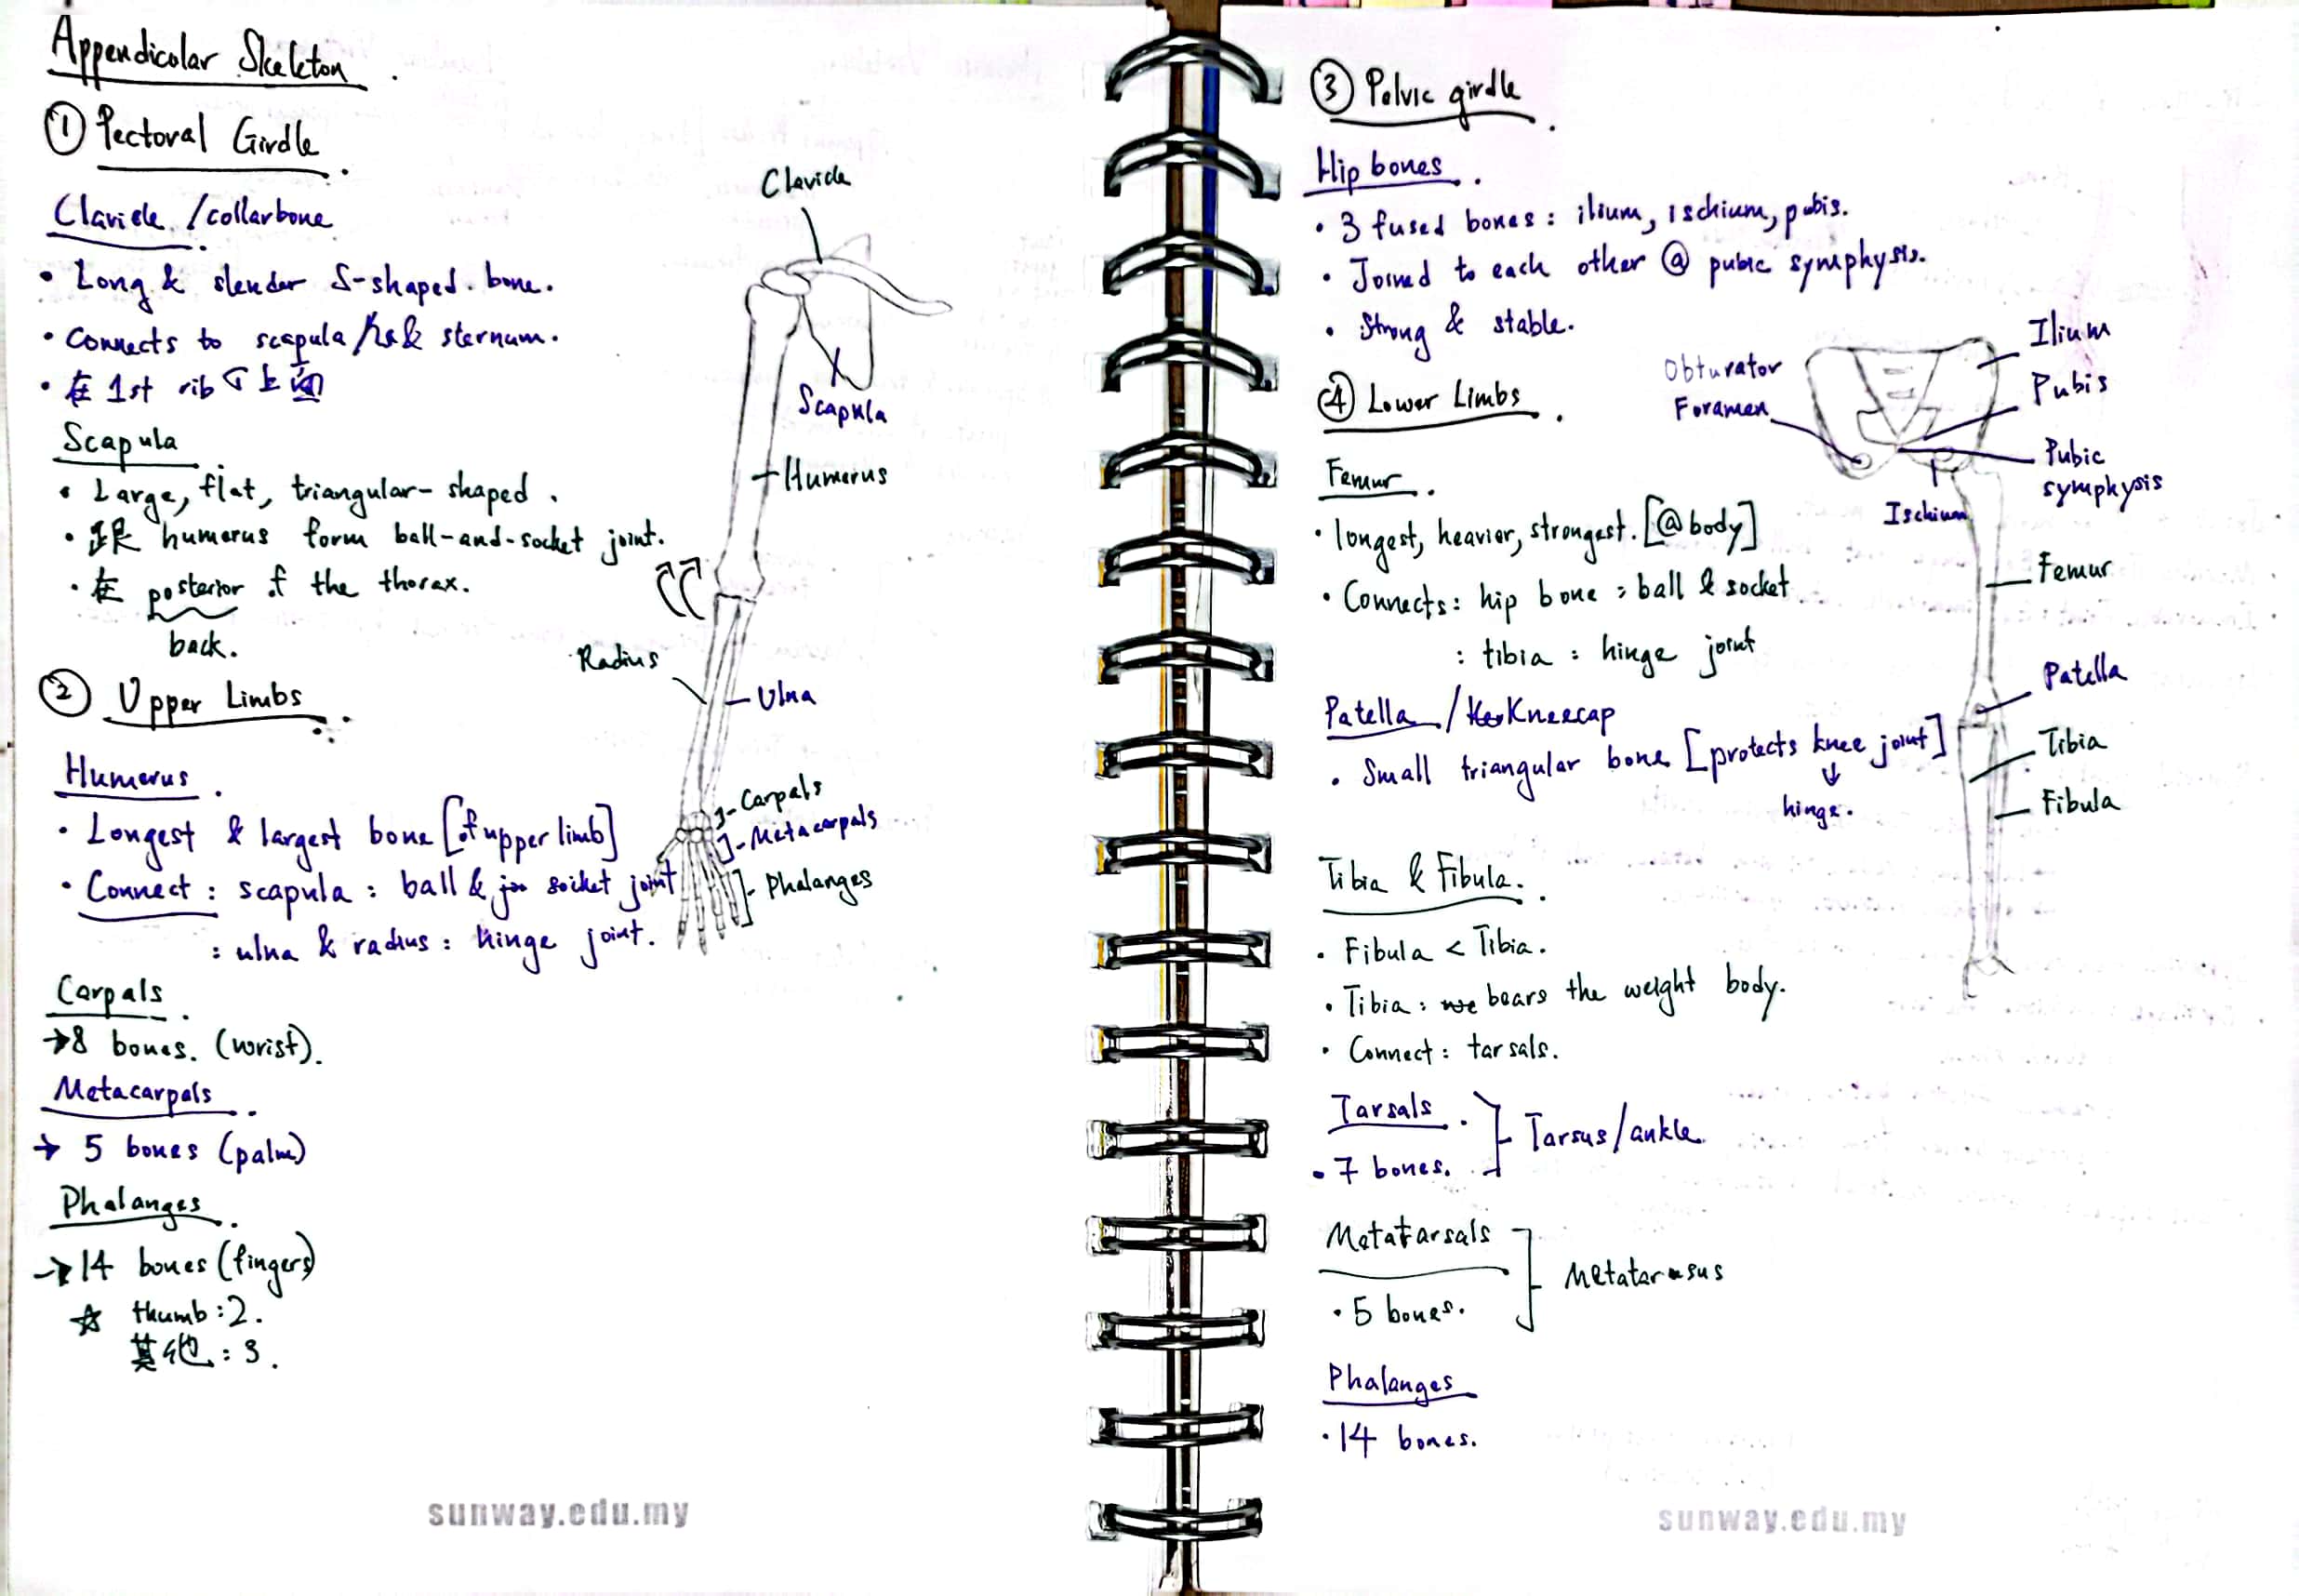 Appendicolar Skeleton.
① Pectoral Girdle.
Clavicle /collarbone
• Long & slender S-shaped. bone.
• Connects to scapula & sternum.
• 在 1st rib 个上面
Scapula
• Large, flat, triangular-shaped.
• 跟 humerus form ball-and-socket joint.
• 在 posterior of the thorax.
back.
② Upper Limbs.
Humerus.
• Longest & largest bone [of upper limb]
• Connect : scapula : ball & socket joint
: ulna & radius : hinge joint.
Carpals.
→ 8 bones. (wrist).
Metacarpals.
→ 5 bones (palm)
Phalanges.
→ 14 bones (fingers)
☆ thumb : 2.
其他 : 3.
Clavicle
Scapula
Humerus
Radius
Ulna
Carpals
Metacarpals
Phalanges
sunway.edu.my
③ Pelvic girdle.
Hip bones.
• 3 fused bones : ilium, ischium, pubis.
• Joined to each other @ pubic symphysis.
• Strong & stable.
④ Lower Limbs.
Femur.
• longest, heavier, strongest. [@body]
• Connects : hip bone : ball & socket
: tibia : hinge joint
Patella / Kneecap
• Small triangular bone [protects knee joint]
↓
hinge.
Tibia & Fibula.
• Fibula < Tibia.
• Tibia : bears the weight body.
• Connect : tarsals.
Tarsals.
• 7 bones.
Tarsus/ankle.
Metatarsals
• 5 bones.
Metatarsus
Phalanges
• 14 bones.
Obturator
Foramen
Ilium
Pubis
Pubic
symphysis
Ischium
Femur
Patella
Tibia
Fibula
sunway.edu.my